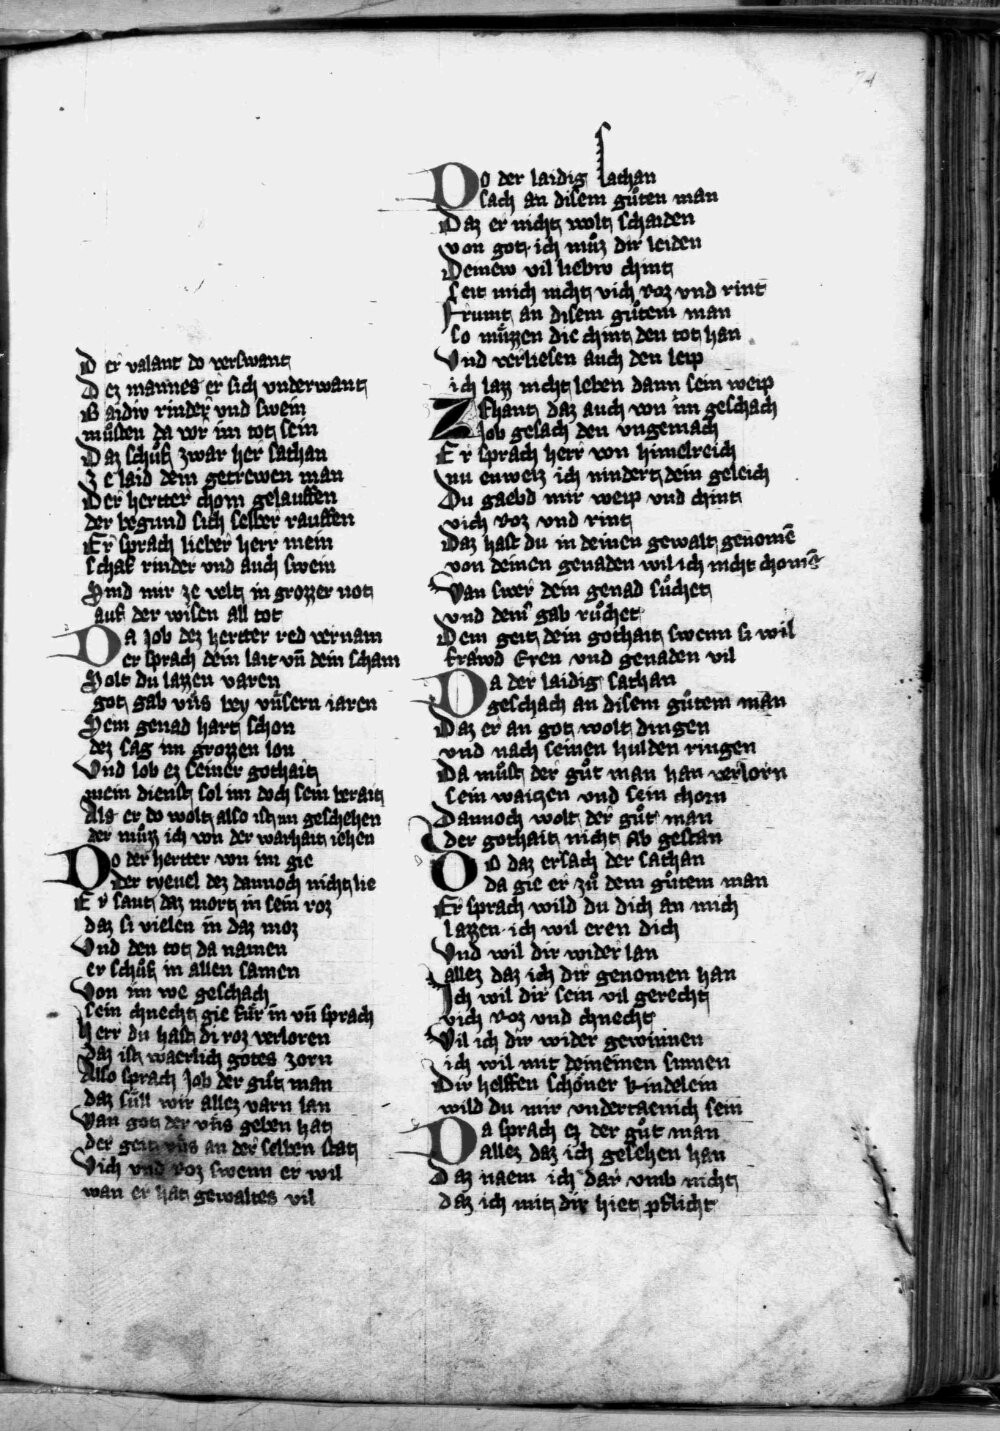 74
Der valant do verswant
Dez mannes er sich vnderwant
Baidiv rinder vnd swein
můsten da vor im tot sein
Daz schůf zwar her sathan
ze laid dem getrewen man
Der hertter chom gelauffen
der begund sich selber rauffen
Er sprach lieber herr mein
schaf rinder vnd auch swein
Sind mir ze velt in grozzer not
auf der wisen all tot
Da Job dez hertter red vernam
er sprach dein lait vn̄ dein scham
Solt du lazzen varen
got gab vn̄s bey vn̄sern iaren
Sein genad hart schon
dez sag im grozzen lon
Vnd lob ez seiner gothait
mein dienst sol im doch sein berait
Als er do wolt also ist im geschehen
der můzz ich von der warhait iehen
Do der hertter von im gie
Der tyeuel dez dannoch nicht lie
Er sant daz mort in sein roz
daz si vielen in daz moz
Vnd den tot da namen
er schůf in allen samen
Von im we geschach
sein chnecht gie fůr in vn̄ sprach
Herr du hast di roz verloren
daz ist waerlich gotes zorn
Also sprach Job der gůt man
daz sůll wir allez varn lan
Wan got der vn̄s geben hat
der geit vn̄s an der selben stat
Vich vnd roz swenn er wil
wan er hat gewaltes vil
Do der laidig sathan
sach an disem gůten man
Daz er nicht wolt schaiden
von got ich můz dir leiden
Deinew vil liebiv chint
seit mich nicht vich roz vnd rint
Frumt an disem gůtem man
so můzzen die chint den tot han
Vnd verliesen auch den leip
ich lazz nicht leben dann sein weip
Zehant daz auch von im geschach
Job gesach den vngemach
Er sprach herr von himelreich
nu enweiz ich nindert dein geleich
Du gaebd mir weip vnd chint
vich roz vnd rint
Daz hast du in deinen gewalt genomē
von deinen genaden wil ich nicht chomē
Wan swer dein genad sůchet
vnd dem gab růchet
Dem geit dein gothait swenn si wil
frawd Eren vnd genaden vil
Da der laidig sathan
geschach an disem gůtem man
Daz er an got wolt dingen
vnd nach seinen hulden ringen
Da můst der gůt man han verlorn
sein waitzen vnd sein chorn
Dannoch wolt der gůt man
der gothait nicht ab gestan
Do daz ersach der sathan
da gie er zů dem gůtem man
Er sprach wild du dich an mich
lazzen ich wil eren dich
Vnd wil dir wider lan
allez daz ich dir genomen han
Ich wil dir sein vil gerecht
vich roz vnd chnecht
Wil ich dir wider gewinnen
ich wil mit deineinen sinnen
Dir helffen schöner kindelein
wild du mir vndertaenich sein
Da sprach ez der gůt man
allez daz ich gesehen han
Daz naem ich dar vmb nicht
daz ich mit dir hiet pflicht